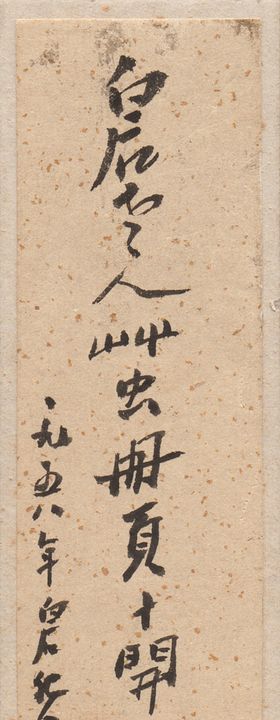 白石老人艸虫冊頁十開
一九五八年白石